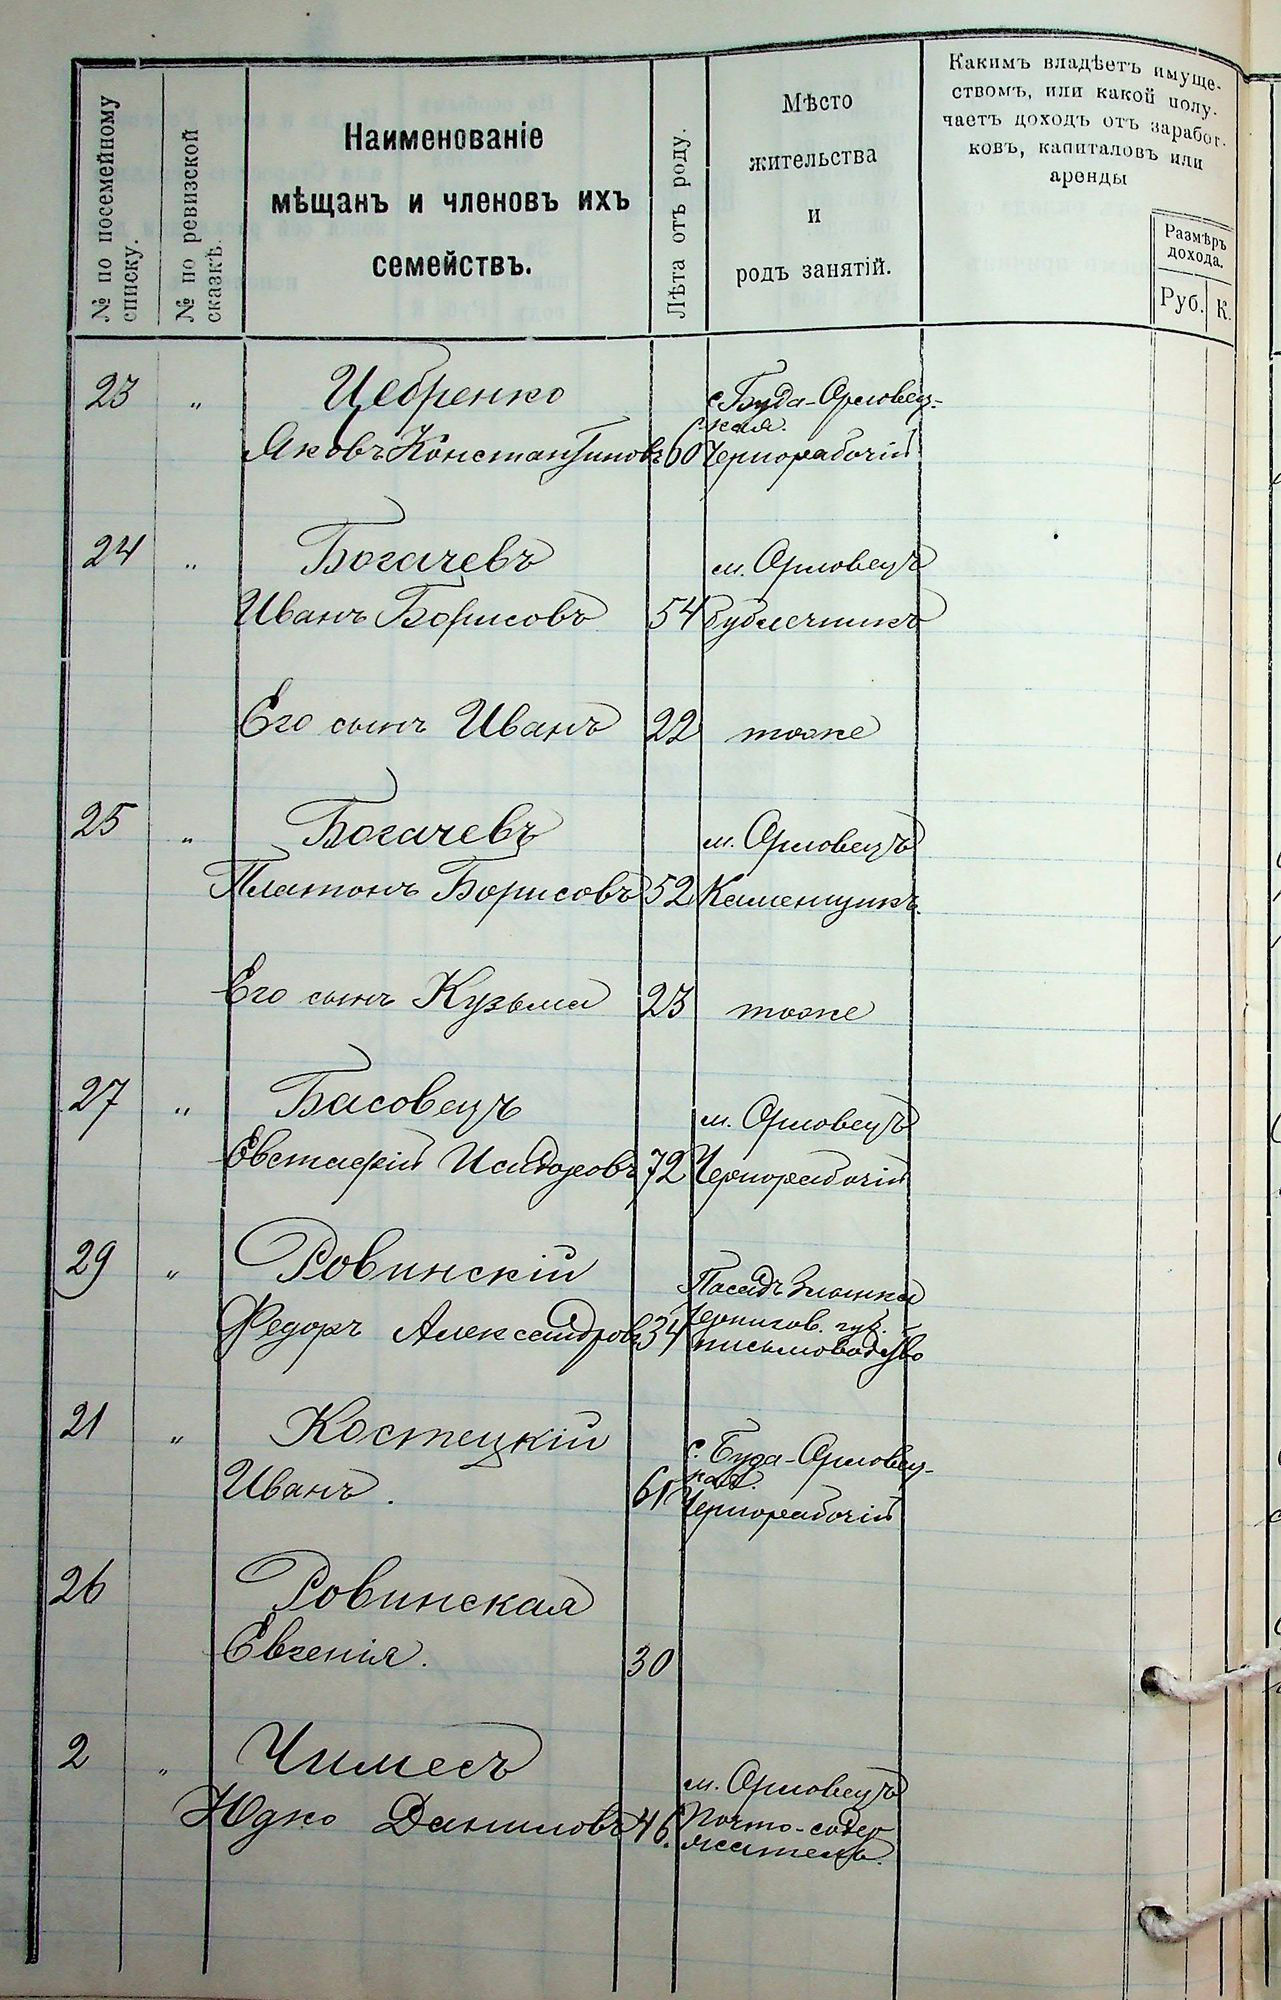 № по посемейному списку.
№ по ревизской сказкѣ.
Наименованіе
мѣщанъ и членовъ ихъ
семействъ.
Лѣта отъ роду.
Мѣсто
жительства
и
родъ занятій.
Какимъ владѣетъ имуще-
ствомъ, или какой полу-
чаетъ доходъ отъ заработ-
ковъ, капиталовъ или
аренды
Размѣръ
дохода.
Руб. К.
23 „ Цебренко с. Буда-Орловец-
кая.
Яковъ Константиновъ 60 Чернорабочій
24 „ Богачевъ м. Орловецъ
Иванъ Борисовъ 54 Бубличникъ
Его сынъ Иванъ 22 тоже
25 „ Богачевъ м. Орловецъ
Платонъ Борисовъ 52 Каменщикъ.
Его сынъ Кузьма 23 тоже
27 „ Басовецъ м. Орловецъ
Евстафій Исидоровъ 72 Чернорабочій
29 „ Ровинскій Посадъ
Чернигов. губ.
Федоръ Александровъ 34 письмоводство
21 „ Костецкій с. Буда-Орловец-
кая.
Иванъ. 61 Чернорабочій
26 Ровинская
Евгенія. 30
2 „ Чимесъ м. Орловецъ
Юдко Даниловъ 46. Почто-содер
жатель.